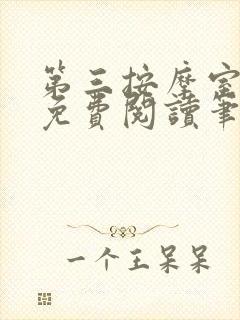 第三按摩室
免費閱讀筆
一个王呆呆